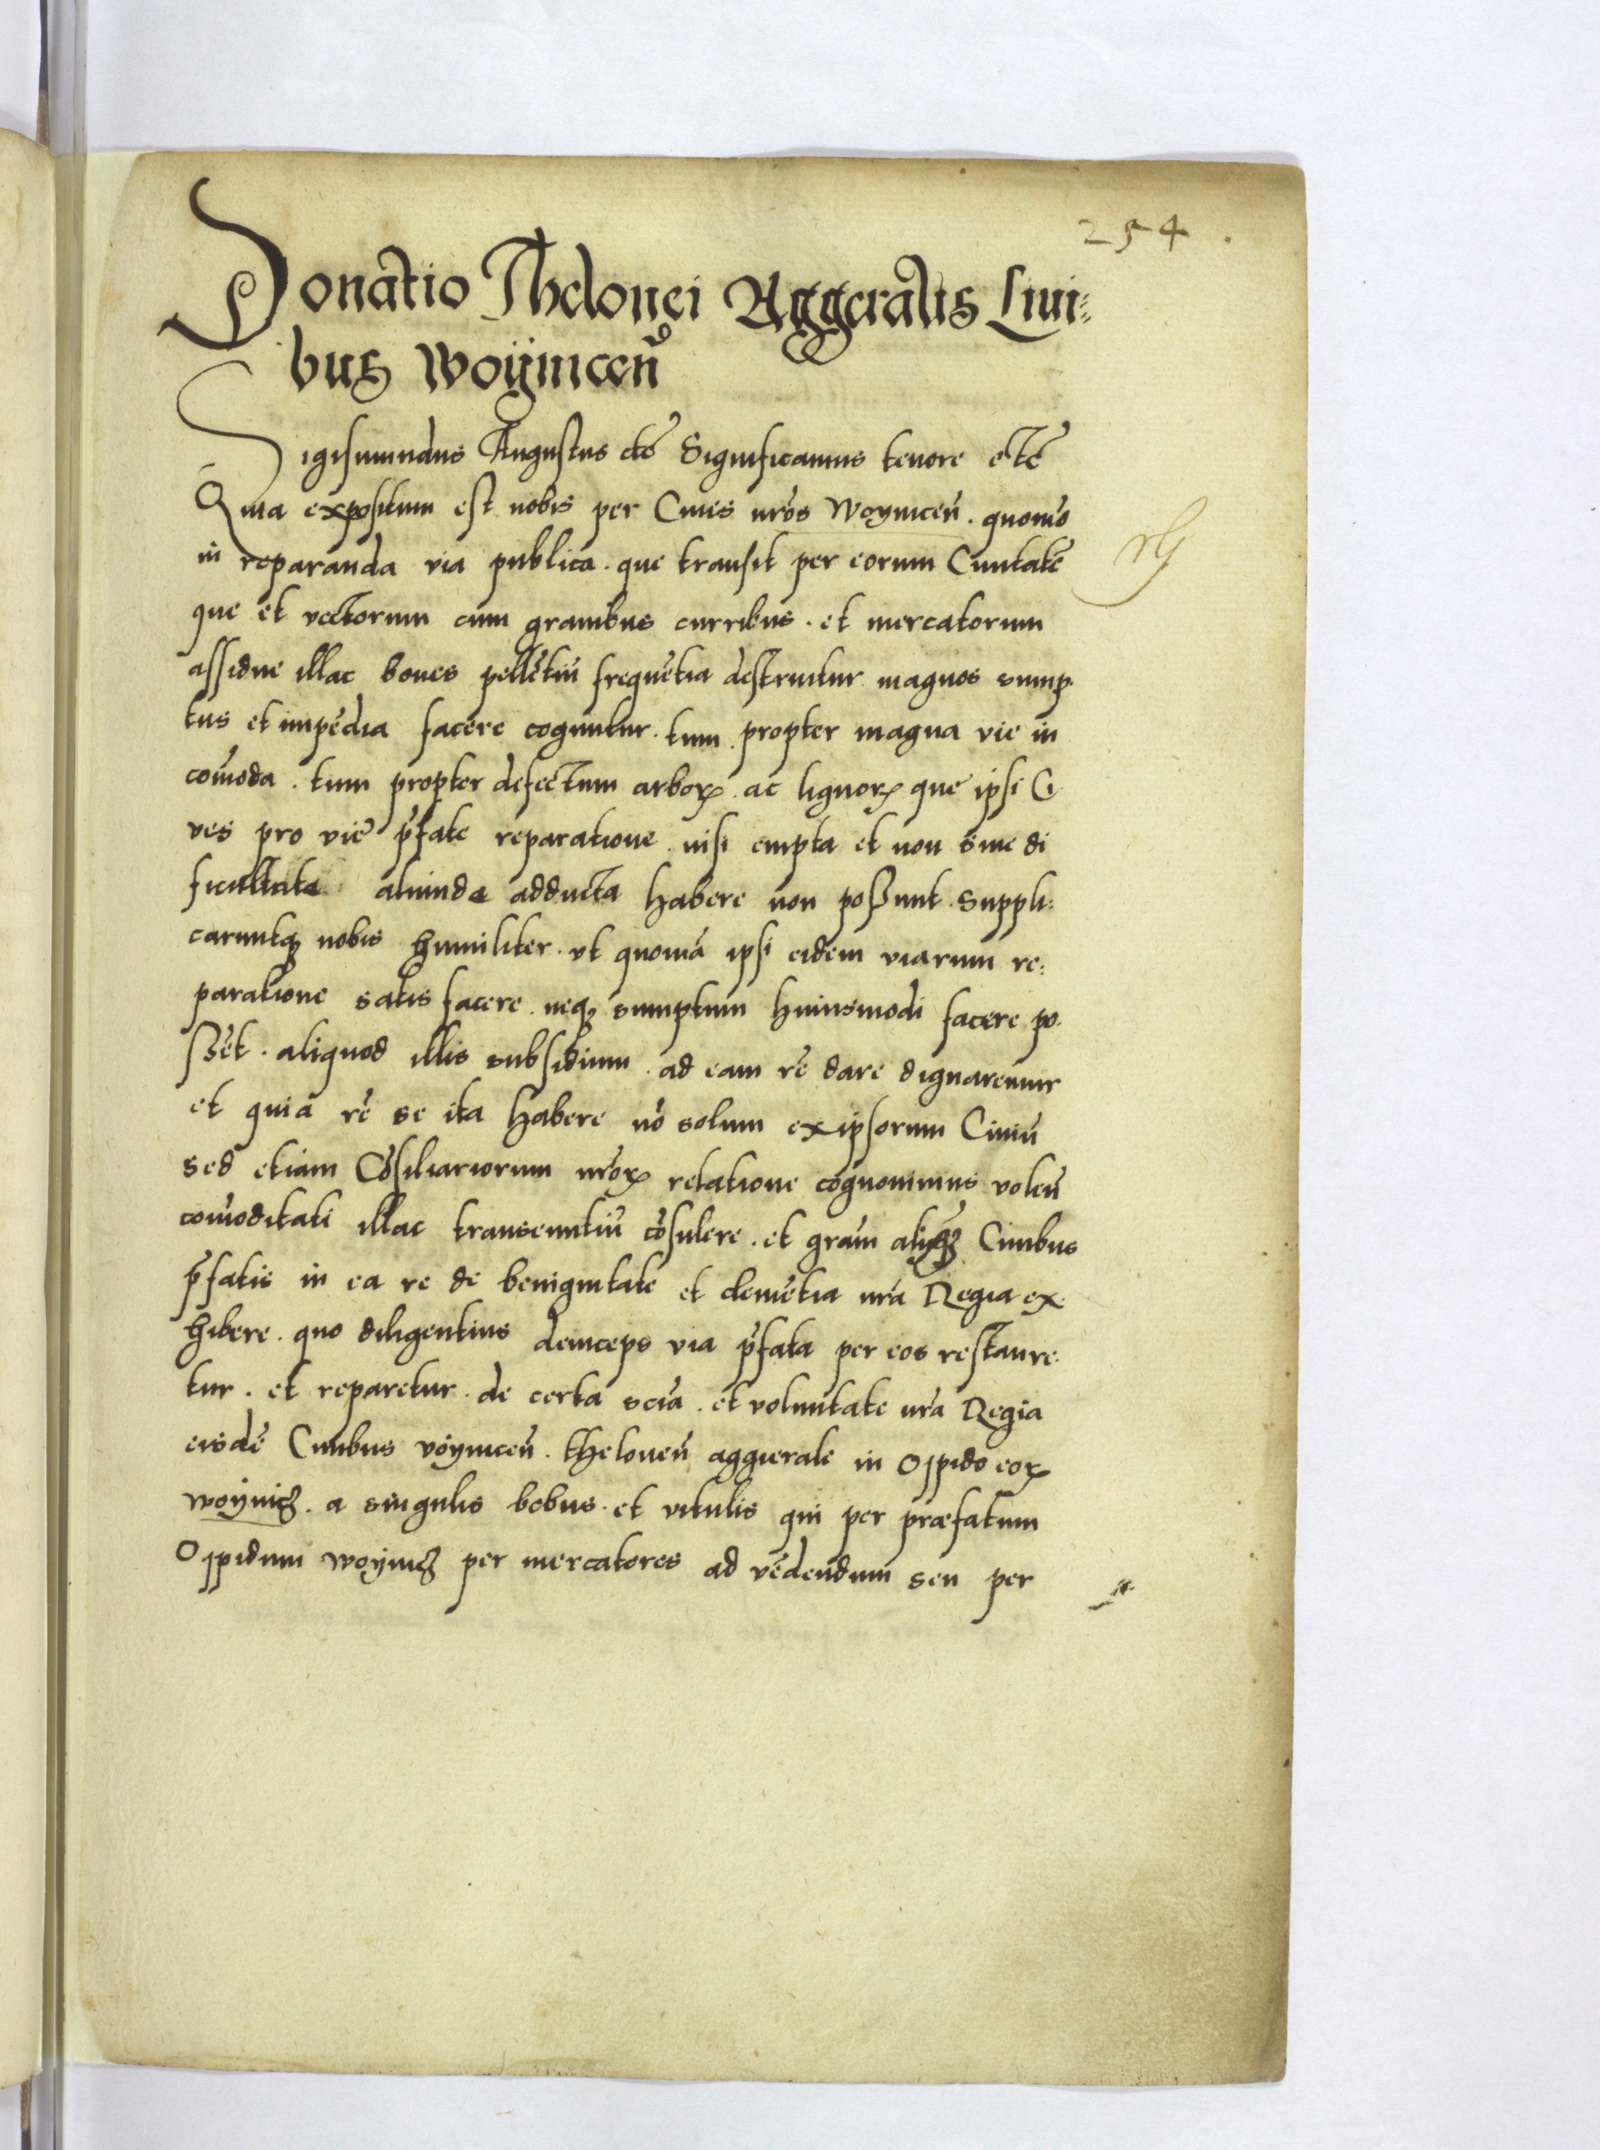 254
Donatio Thelonei Aggeralis Ciui⸗
bus Woÿnicen̄
Sigismundus Augustus etc̄ Significamus tenore etc̄
Quia expositum est nobis per Ciues nr̄os Woynicen̄. quomō
in reparanda via publica. que transit per eorum Ciuitatē
que et vectorum cum grauibus curribus. et mercatorum
assidue illac boues pellētiū frequētia destruitur magnos sump.
tus et impēdia facere coguntur. tum. propter magna vie in
com̄oda. tum propter defectum arborꝝ. ac lignorꝝ que ipsi Ci
ues pro vie p̄fate reparatione. nisi empta et non sine di
ficultate aliunde adducta habere non possunt. Suppli⸗
caruntqꝫ nobis humiliter. vt quoniā ipsi eidem viarum re⸗
paratione satis facere. neqꝫ sumptum huiusmodi facere po.
ssēt. aliquod illis subsidium. ad eam rē dare dignaremur
et quia rē se ita habere nō solum ex ipsorum Ciuiū
sed etiam Cōsiliariorum nr̄orꝝ relatione cognouimus volen̄
com̄oditati illac transeuntiū cōsulere. et gram̄ aliqꝫ Ciuibus
p̄fatis in ea re de benignitate et clemētia nr̄a Regia ex.
hibere. quo diligentius deinceps via p̄fata per eos restaure.
tur. et reparetur. de certa scīa. et voluntate nr̄a Regia
eisdē Ciuibus voÿnicen̄. thelonen̄ aggerale in Oppido eorꝝ
woÿnicꝫ. a singulis bobus. et vitulis qui per præfatum
Oppidum woÿnicꝫ per mercatores ad vēdendum seu per